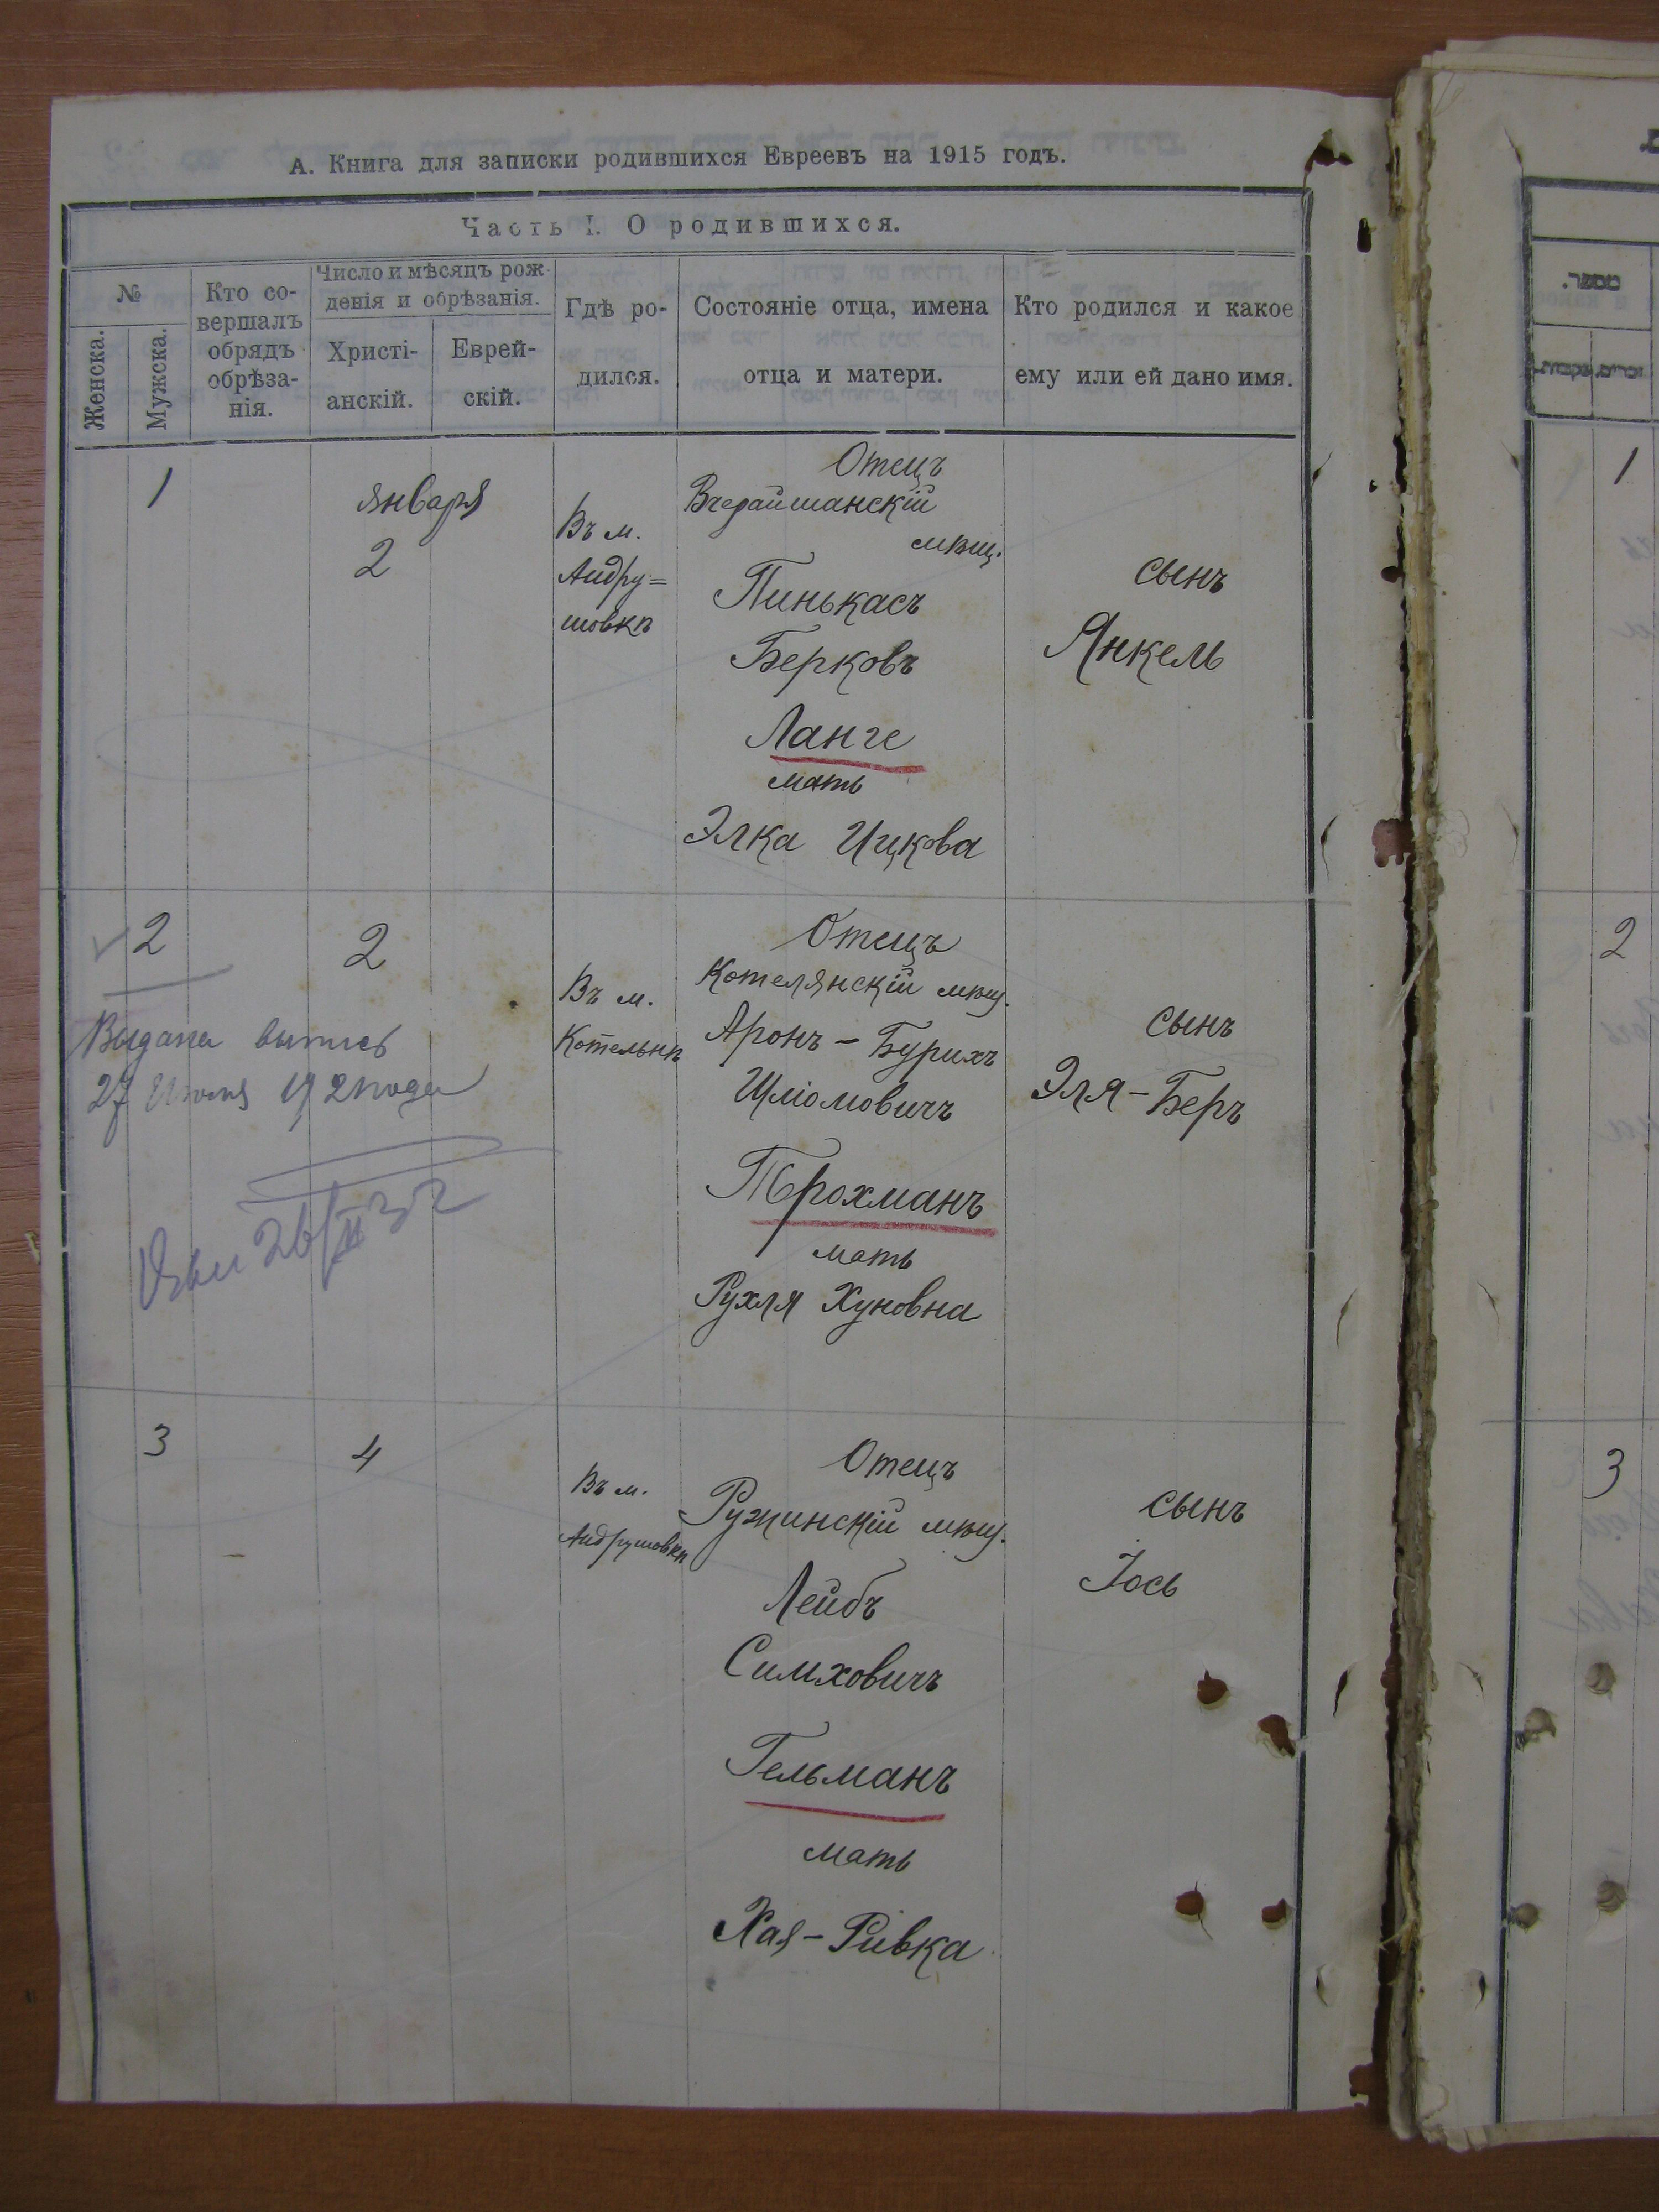 А. Книга для записки родившихся Евреевъ на 1915 годъ.
Часть I. О родившихся.
№
Женска.
Мужска.
Кто со-
вершалъ
обрядъ
обрѣза-
нія.
Число и мѣсяцъ рож-
денія и обрѣзанія.
Христі-
анскій.
Еврей-
скій.
Гдѣ ро-
дился.
Состояніе отца, имена
отца и матери.
Кто родился и какое
ему или ей дано имя.
1
января
2
Въ м.
Андру=
шовкѣ
Отецъ
Вчерайшанскій
мѣщ.
Пинькасъ
Берковъ
Ланге
мать
Элка Ицкова
сынъ
Янкель
2
2
Выдана выпись
27 Июля 1921 года
Въ м.
Котельнѣ
Отецъ
Котелянскій мѣщ.
Аронъ-Бурихъ
Шліомовичъ
Трохманъ
мать
Рухля Хуновна
сынъ
Эля-Беръ
26/II 32
3
4
Въ м.
Андрушовкѣ
Отецъ
Ружинскій мѣщ.
Лейбъ
Симховичъ
Гельманъ
мать
Хая-Ривка
сынъ
Іось
1
2
3